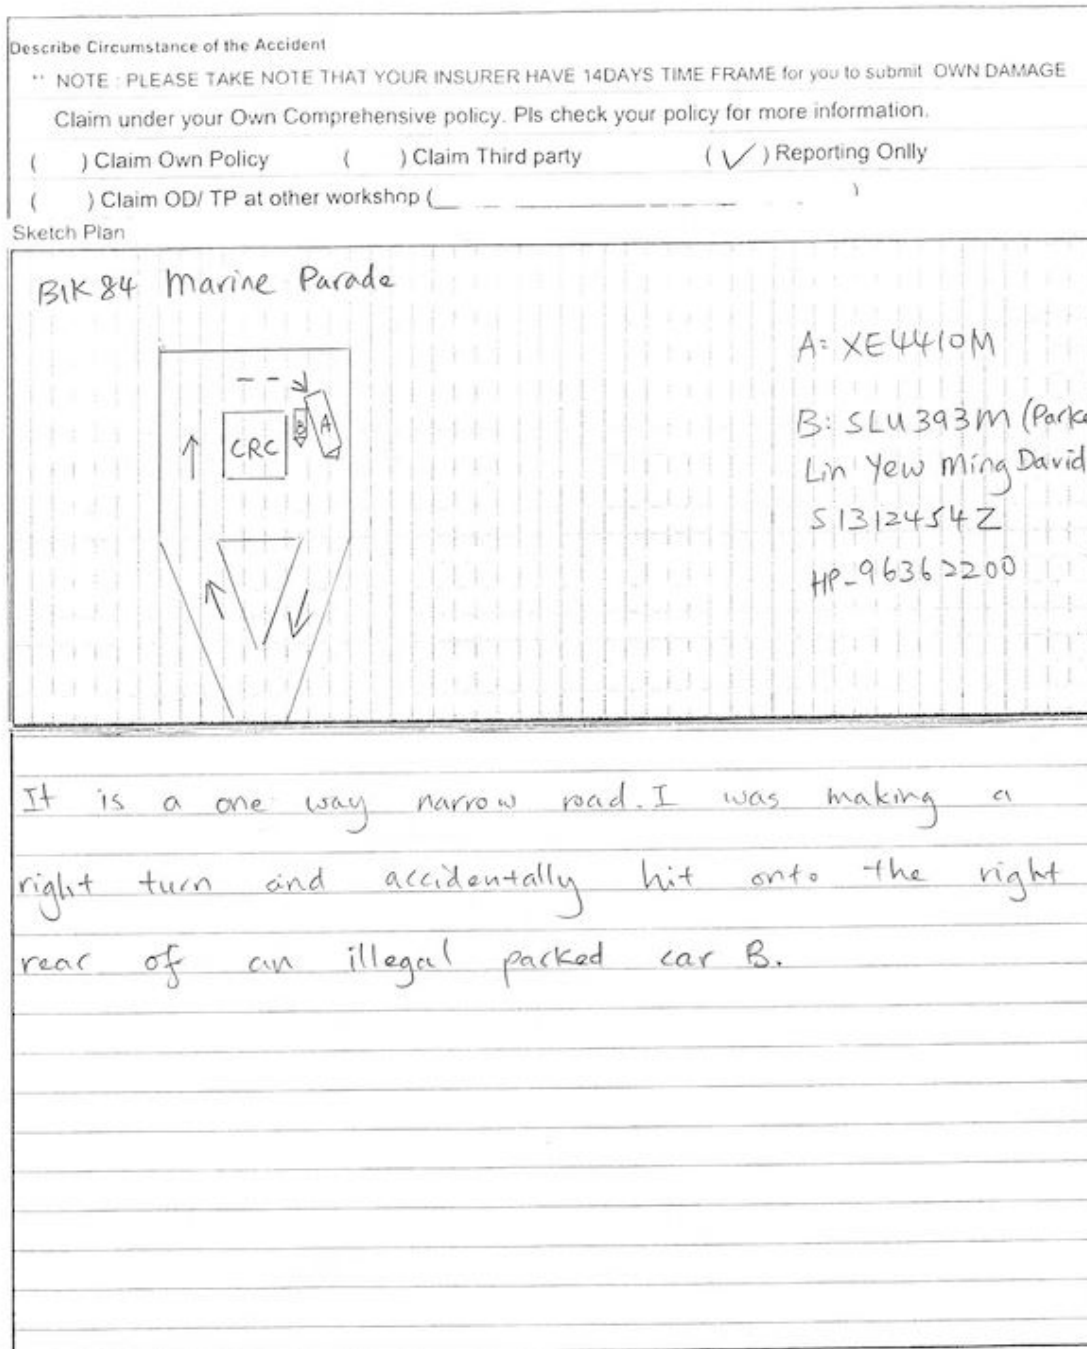 Describe Circumstance of the Accident
** NOTE : PLEASE TAKE NOTE THAT YOUR INSURER HAVE 14DAYS TIME FRAME for you to submit OWN DAMAGE
Claim under your Own Comprehensive policy. Pls check your policy for more information.
( ) Claim Own Policy ( ) Claim Third party ( ✓ ) Reporting Onlly
( ) Claim OD/ TP at other workshop (____ )
Sketch Plan
Blk 84 Marine Parade
A: XE4410M
B: SLU393M (Parke
Lin Yew Ming David
S1312454Z
HP-96362200
CRC
B
A
It is a one way narrow road. I was making a
right turn and accidentally hit onto the right
rear of an illegal parked car B.